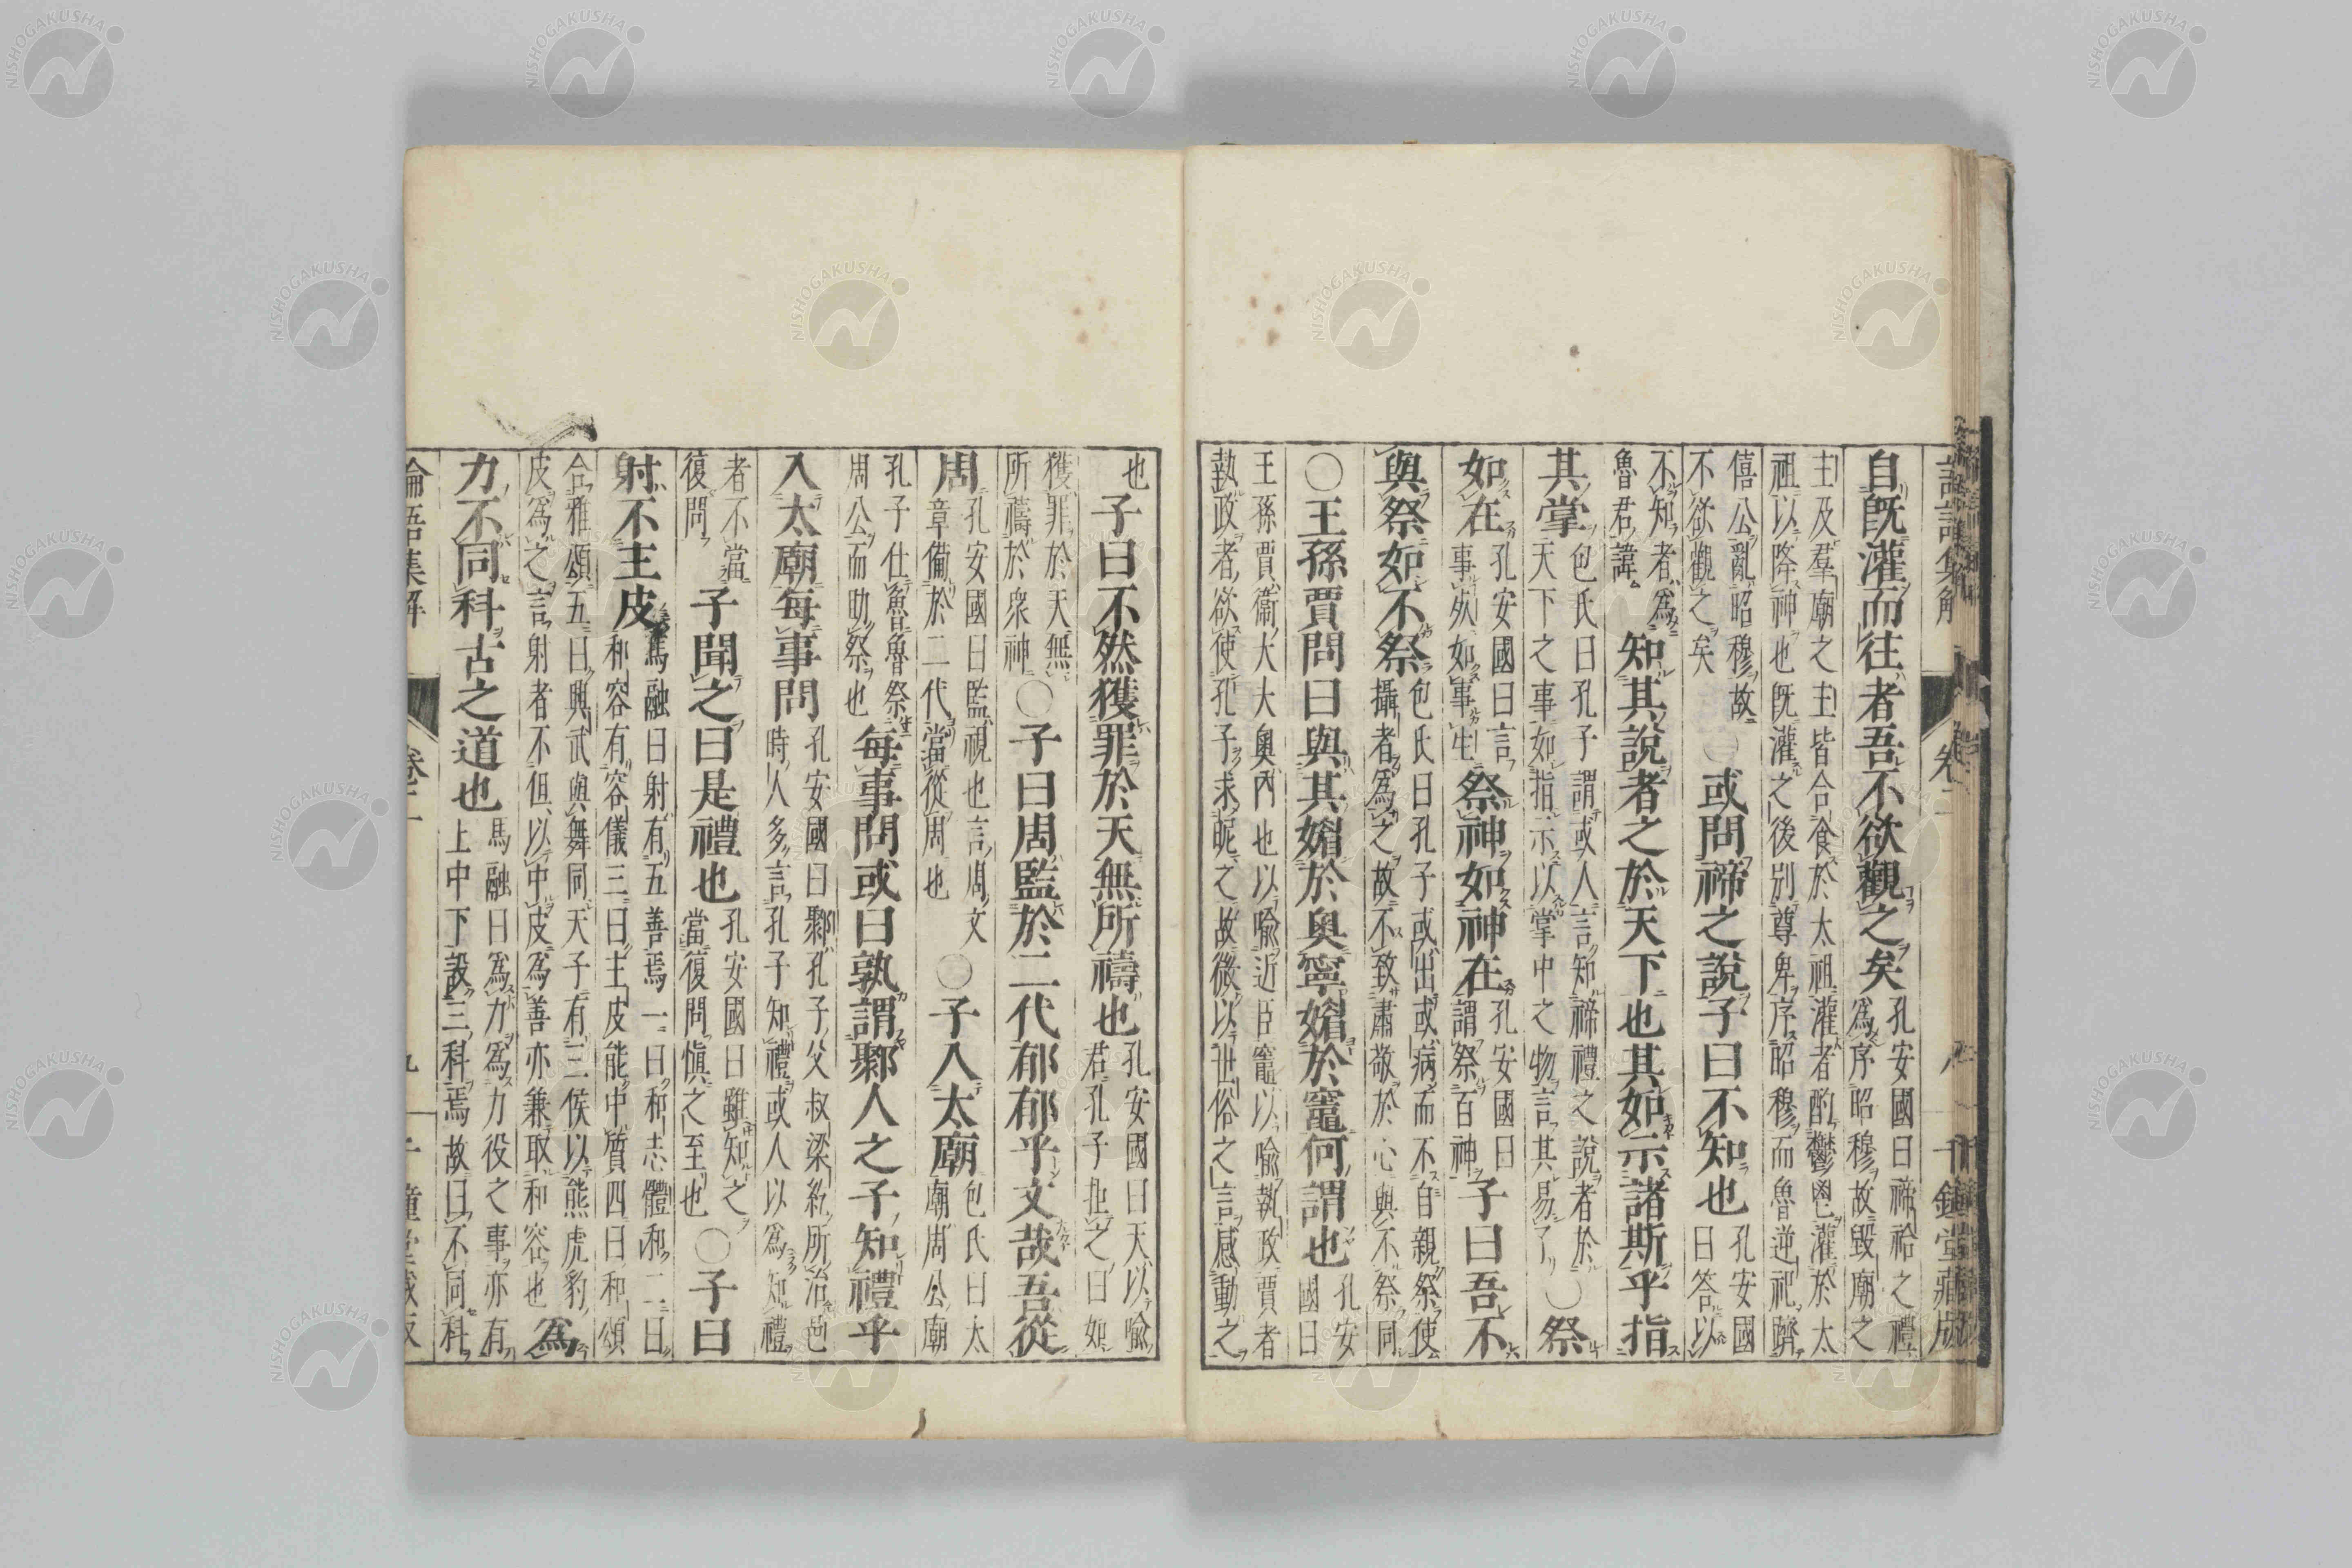 自既灌而往者吾不欲觀之矣 孔安國曰禘祫之禮
爲序昭穆故毀廟之
主及群廟之主皆合食於太祖灌者酌鬱鬯灌於太
祖以降神也既灌之後別尊卑序昭穆而魯逆祀躋
僖公亂昭穆故
不欲觀之矣 〇或問禘之說子曰不知也 孔安國
曰答以
不知者爲
魯君諱 知其說者之於天下也其如示諸斯乎指
其掌 包氏曰孔子謂或人言知禘禮之說者於
天下之事如指示以掌中之物言其易了 〇祭
如在 孔安國曰言
事死如事生 祭神如神在 孔安國曰
謂祭百神 子曰吾不
與祭如不祭 包氏曰孔子或出或病而不自親祭使
攝者爲之故不致肅敬於心與不祭同
〇王孫賈問曰與其媚於奧寧媚於竈何謂也 孔安
國曰
王孫賈衞大夫奧內也以喩近臣竈以喩執政賈者
執政者欲使孔子求昵之故微以世俗之言感動之
也 子曰不然獲罪於天無所禱也 孔安國曰天以喩
君孔子拒之曰如
獲罪於天無
所禱於衆神 〇子曰周監於二代郁郁乎文哉吾從
周 孔安國曰監視也言周文
章備於二代當從周也 〇子入太廟 包氏曰太
廟周公廟
孔子仕魯魯祭
周公而助祭也 每事問或曰孰謂鄹人之子知禮乎
入太廟每事問 孔安國曰鄹孔子父叔梁紇所治邑
時人多言孔子知禮或人以爲知禮
者不當
復問 子聞之曰是禮也 孔安國曰雖知之
當復問愼之至也 〇子曰
射不主皮 馬融曰射有五善焉一曰和志體和二曰
和容有容儀三曰主皮能中質四曰和頌
合雅頌五曰興武與舞同天子有三侯以熊虎豹
皮爲之言射者不但以中皮爲善亦兼取和容也 爲
力不同科古之道也 馬融曰爲力爲力役之事亦有
上中下設三科焉故曰不同科
論語集解 卷二 九 千鍾堂藏版